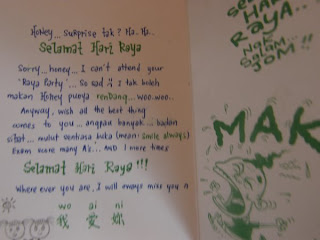 Honey... surprise tak? Ha.. Ha..
Selamat Hari Raya
Sorry... honey... I can't attend your
"Raya Party"... So sad I tak boleh
makan Honey punya rendang... woo.. woo..
Anyway, wish all the best thing
comes to you.. angpau banyak.. badan
sihat... mulut sentiasa buka (mean: smile always)
Exam score many A's.. And 1 more times
Selamat Hari Raya!!!
Where ever you are, I will always miss you
wo ai ni
我 愛 妳
HARI
RAYA..
NAK
SALAM..
JOM!!
MAK